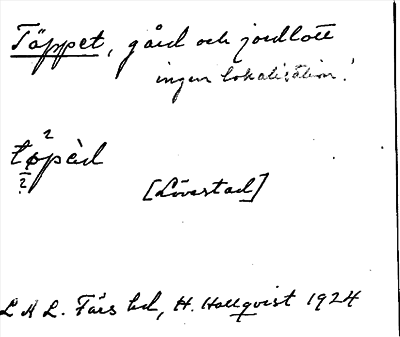 Täppet, gård och jordlott
ingen lokalisation!
2
tøpèd
2
[Lövestad]
L A L. Färs hd, H. Hallqvist 1924